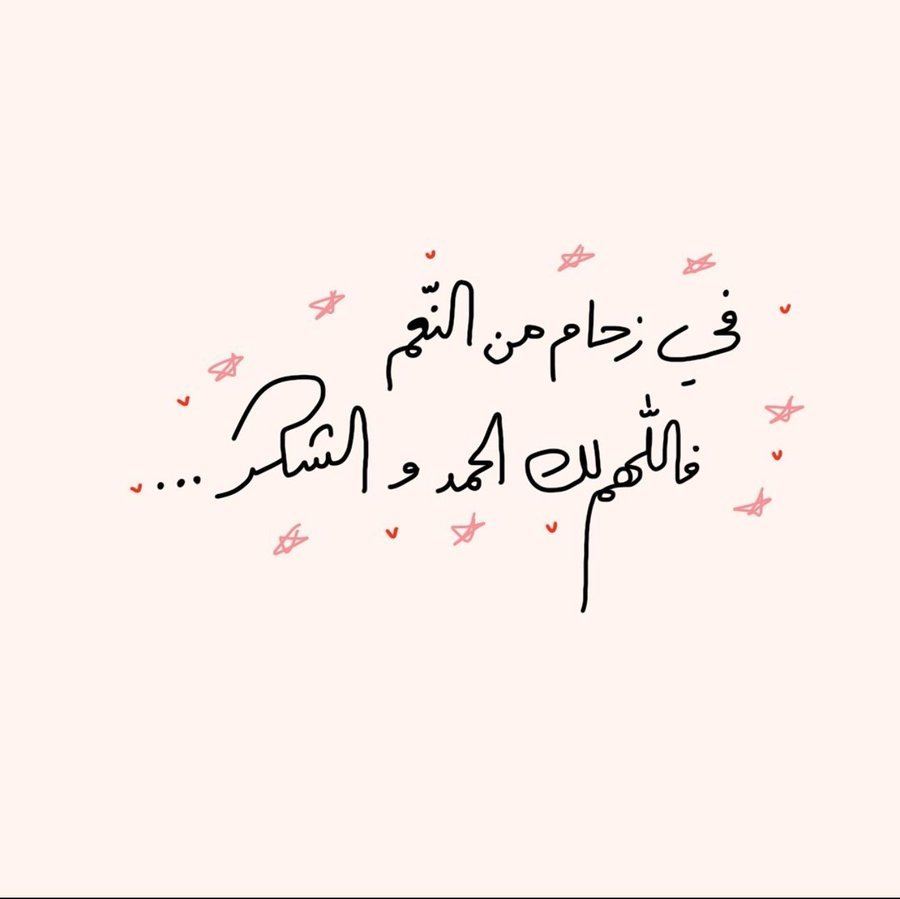 في زحام من النّعم
فاللّهم لك الحمد و الشكر ...